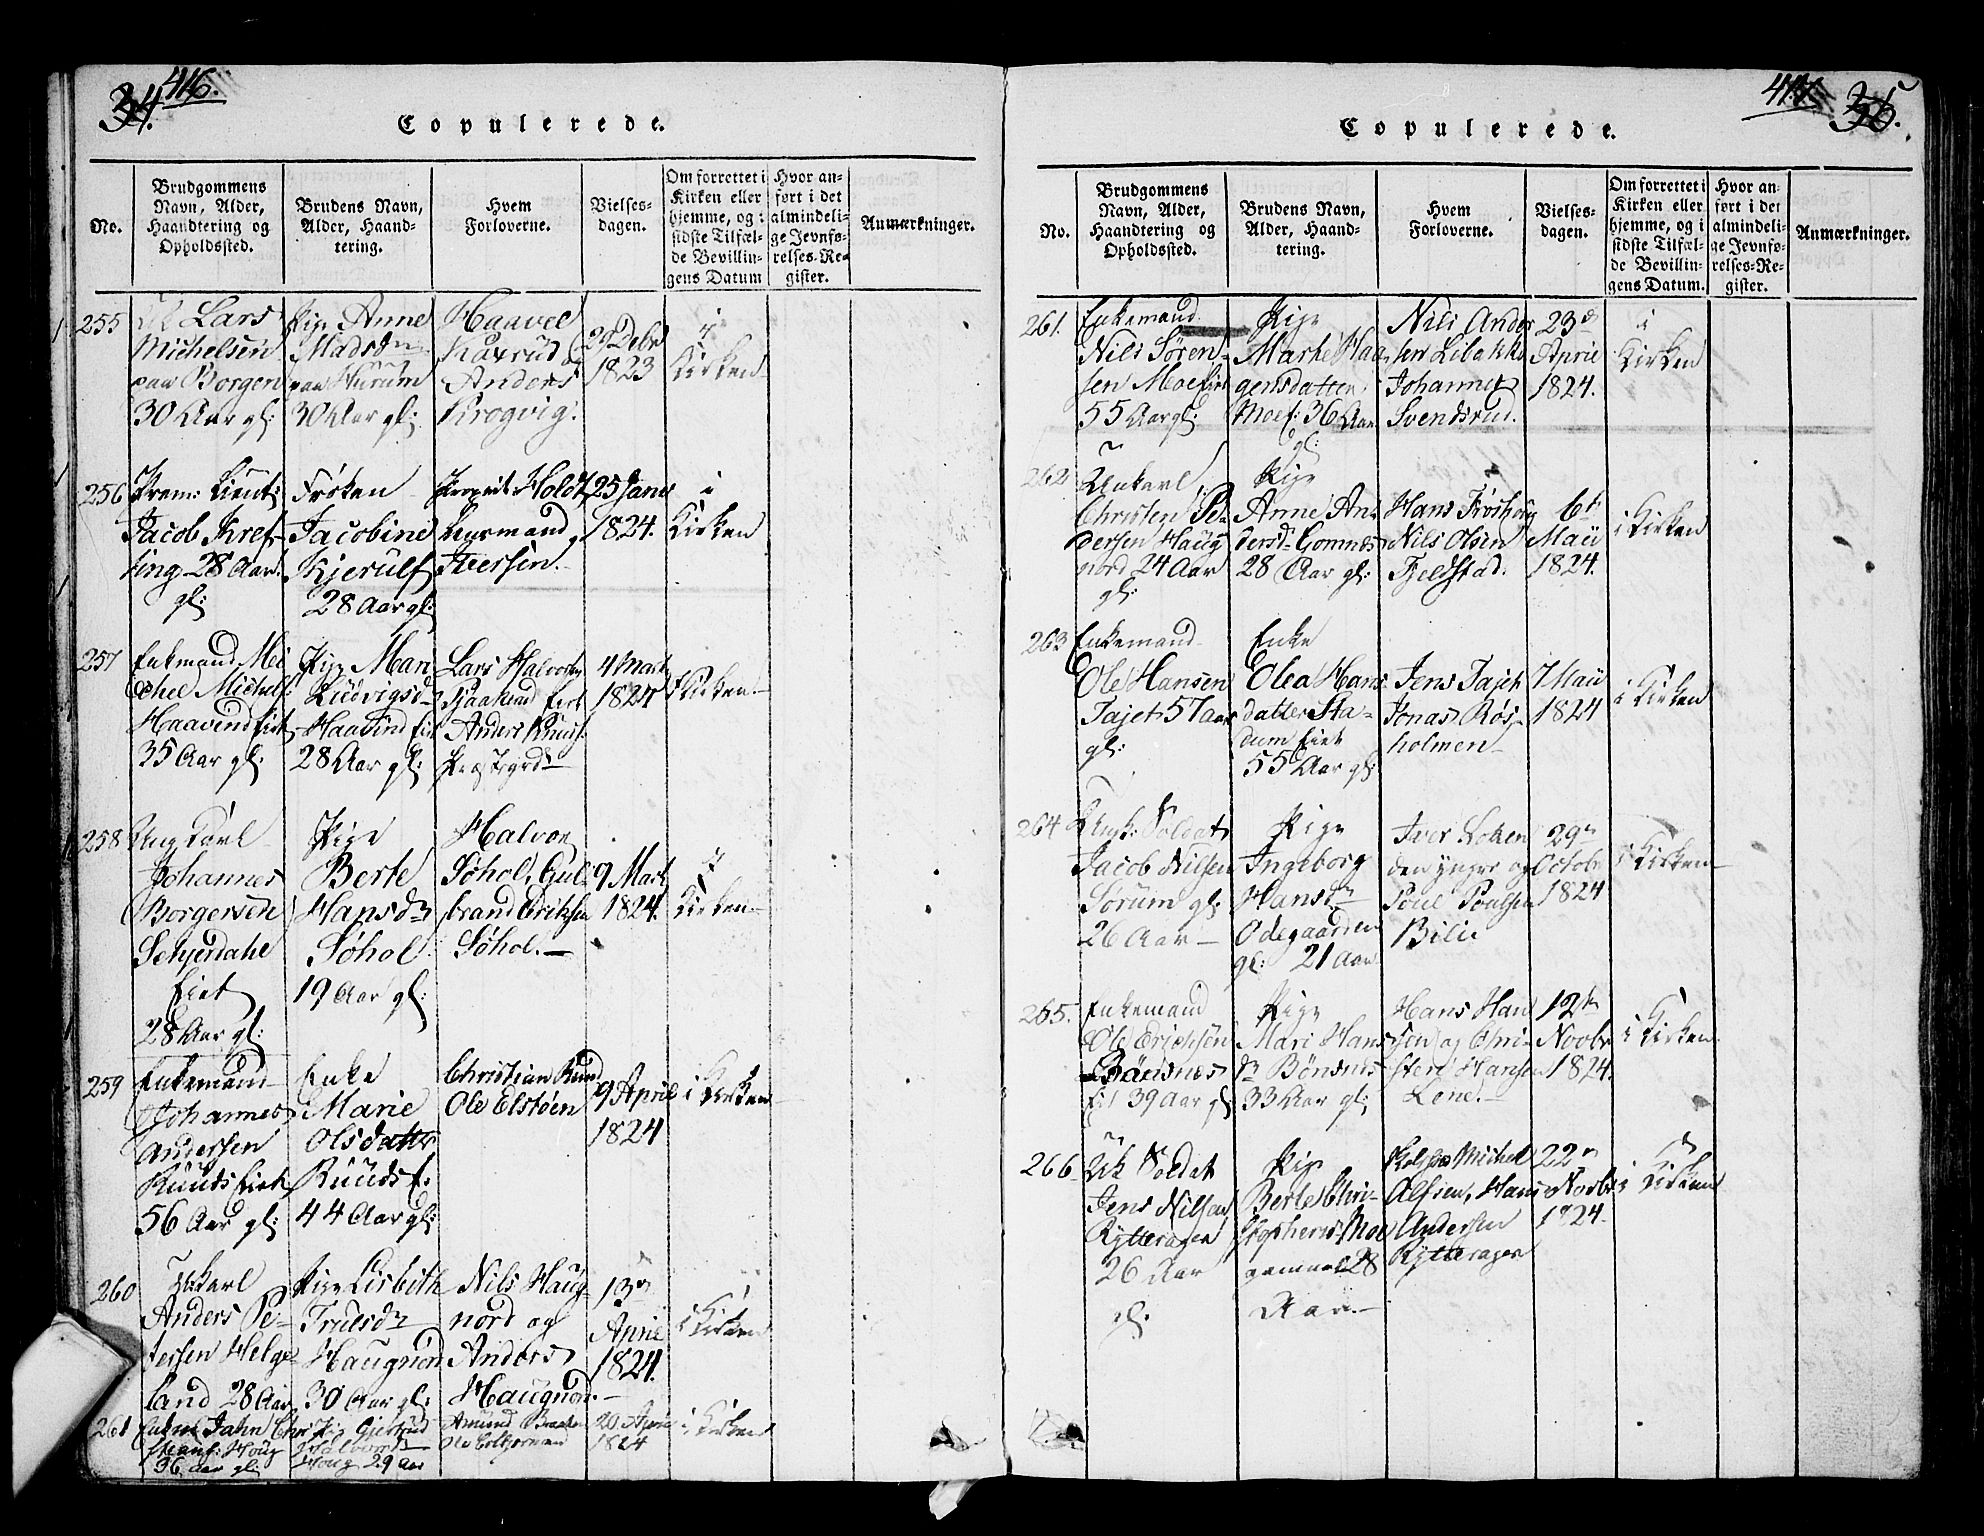 34. 416.
Copulerede.
No.
Brudgommens
Navn, Alder,
Haandtering og
Opholdssted.
Brudens Navn,
Alder, Haand-
tering.
Hvem
Forloverne.
Vielses-
dagen.
Om forrettet i
Kirken eller
hjemme, og i
sidste Tilfæl-
de Bevillin-
gens Datum
Hvor an-
ført i det
almindeli-
ge Jevnfø-
relses-Re-
gister.
Anmærkninger.
255
Lars
Michelsen
paa Borgen
30 Aar gl:
Pige Anne
Madsdr
paa Hurum
30 Aar gl:
Haavel
Kaxrud
Anders
Krogvig.
29 Debr
1823
i
Kirken
256
Prem: Lieut:
Jacob Kref-
ting 28 Aar
gl:
Frøken
Jacobine
Kjerulf
28 Aar gl:
Holdt
Stersen.
25 Janr
1824.
i
Kirken
257
Enkmand Mi-
chel Michels:
Haavend Eiet
35 Aar gl:
Pige Mari
Ludvigsd
Haavind Eiet
28 Aar gl:
Lars Halvorsen
Anders Knuds:
4 Mart
1824
i Kirken
258
Ung Karl
Johannes
Borgersen
Schjerdahl
Eiet
28 Aar gl:
Pige
Berte
Hansdr
Søhol
19 Aar gl:
Halvor
Søhol, Gul-
brand Erichsen
Søhol.
9 Mart
1824.
i
Kirken
259
Enkemand
Johannes
Andersen
Ruuds Eiet
56 Aar gl:
Enke
Marie
Olsdatter
Ruuds E.
44 Aar gl:
Christian Ruud
Ole Elstøen
9 April
1824
i Kirken
260
Ukarl
Anders Pe-
tersen Helge-
land 28 Aar
Pige Lisbith
Truelsdr
Haugnord
30 Aar gl:
Nils Haug-
nord og
Anders
Haugnord.
13de
April
1824.
i Kirken
261
Enkm Jahn Chri-
Houg
36 Aar gl:
Pig Giertrud
Halvorsd
Houg 29 Aar
Amund Braaten
20 April
1824
i Kirken
417. 35.
Copulerede.
No.
Brudgommens
Navn, Alder,
Haandtering og
Opholdssted.
Brudens Navn,
Alder, Haand-
tering.
Hvem
Forloverne.
Vielses-
dagen.
Om forrettet i
Kirken eller
hjemme, og i
sidste Tilfæl-
de Bevillin-
gens Datum.
Hvor an-
ført i det
almindeli-
ge Jevnfø-
relses-Re-
gister.
Anmærkninger.
261.
Enkemand
Nils Søren-
sen Moe Eiet
55 Aar gl:
Pige
Marthe Haa-
gensdatter
Moe: 36 Aar
gl:
Nils Ander-
sen Libakke
Johannes
Svendsrud.
23d
April
1824.
i
Kirken
262
Unkarl
Christen Pe-
dersen Haug-
nord 24 Aar
gl:
Pige
Anne An-
dersdr Gomnes
28 Aar gl:
Hans Frøshoug
Nils Olsen
Fjeldstad.
6te
Maii
1824.
i Kirken
263
Enkemand
Ole Hansen
Tajet 57 aar
gl:
Enke
Olea Hans-
datter Sta-
dum Eiet
55 Aar gl:
Jens Tajet
Jonas Røs-
holmen
7 Maii
1824
i Kirken
264
Soldat
Jacob Nilsen
Sørum gl:
26 Aar
Pige
Ingeborg
Hansdr
Odegaarden
gl: 21 Aar
Iver Loken
den yngre og
Poul Poulsen
Bili
29de
Octobr
1824
i Kirken
265.
Enkemand
Ole Erichsen
Bönsnes
Eiet 39 Aar gl:
Pige
Mari Hans-
dr Bönsnes
33 Aar gl:
Hans Han-
sen og Chri-
sten Hansen
Lone.
12te
Novbr
1824.
i Kirken
266
Uk Soldat
Jens Nilsen
Rytterager
26 Aar
gl:
Pige
Berte Chri-
stophersd: Moe
gammel 28
Aar.
Michel
Alfsen, Hans
Andersen
Rytterager
22n
Novbr
1824.
i Kirken